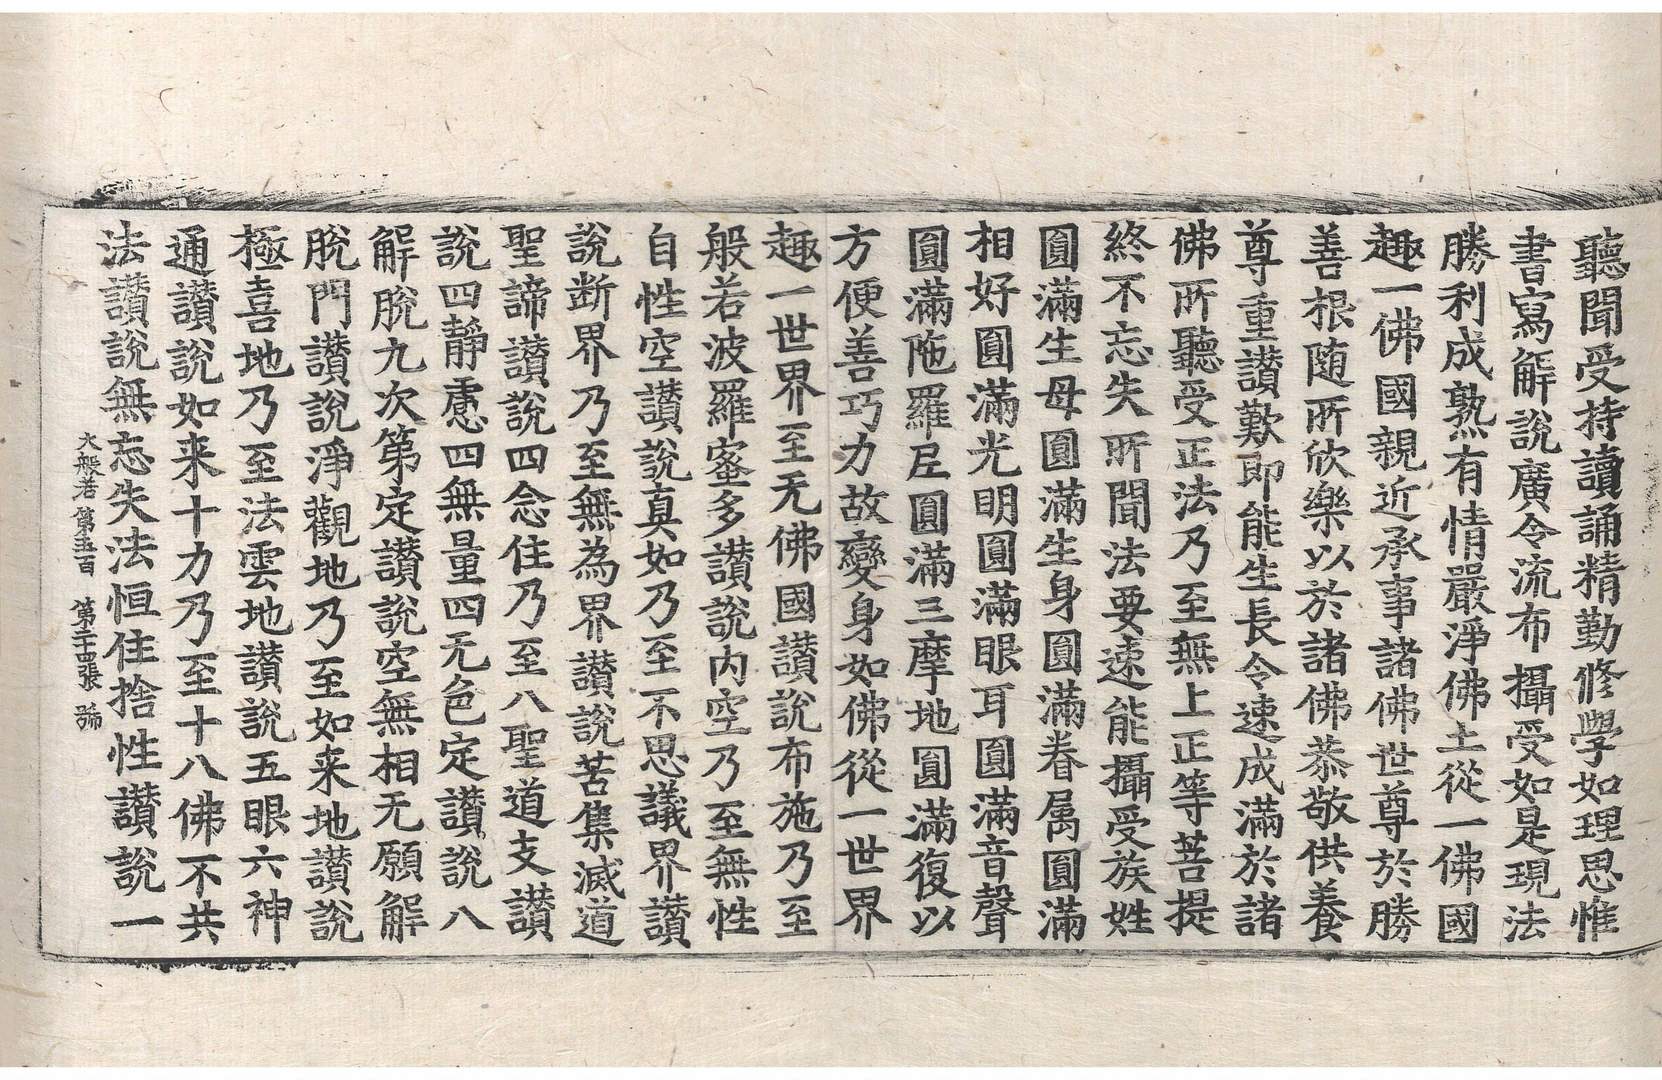 聽聞受持讀誦精勤修學如理思惟
書寫解說廣令流布攝受如是現法
勝利成熟有情嚴淨佛土從一佛國
趣一佛國親近承事諸佛世尊於勝
善根随所欣樂以於諸佛恭敬供養
尊重讃歎即能生長令速成滿於諸
佛所聽受正法乃至無上正等菩提
終不忘失所聞法要速能攝受族姓
圓滿生母圓滿生身圓滿眷属圓滿
相好圓滿光明圓滿眼耳圓滿音聲
圓滿陁羅尼圓滿三摩地圓滿復以
方便善巧力故變身如佛從一世界
趣一世界至无佛國讃說布施乃至
般若波羅蜜多讃說内空乃至無性
自性空讃說真如乃至不思議界讃
說断界乃至無為界讃說苦集滅道
聖諦讃說四念住乃至八聖道支讃
說四靜慮四無量四无色定讃說八
解脫九次第定讃說空無相无願解
脫門讃說淨觀地乃至如来地讃說
極喜地乃至法雲地讃說五眼六神
通讃說如来十力乃至十八佛不共
法讃說無忘失法恒住捨性讃說一
大般若第五百 第二十四張 號